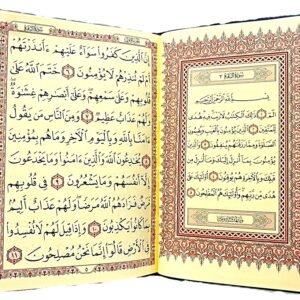 سُورَةُ البَقَرَةِ ٢
بِسْمِ اللَّهِ الرَّحْمَٰنِ الرَّحِيمِ
الٓمٓ ١ ذَٰلِكَ الْكِتَابُ لَا رَيْبَ فِيهِ هُدًى
لِّلْمُتَّقِينَ ٢ الَّذِينَ يُؤْمِنُونَ بِالْغَيْبِ وَيُقِيمُونَ
الصَّلَاةَ وَمِمَّا رَزَقْنَاهُمْ يُنفِقُونَ ٣ وَالَّذِينَ
يُؤْمِنُونَ بِمَا أُنزِلَ إِلَيْكَ وَمَا أُنزِلَ مِن
قَبْلِكَ وَبِالْآخِرَةِ هُمْ يُوقِنُونَ ٤ أُولَٰئِكَ عَلَىٰ
هُدًى مِّن رَّبِّهِمْ وَأُولَٰئِكَ هُمُ الْمُفْلِحُونَ ٥
إِنَّ الَّذِينَ كَفَرُوا سَوَاءٌ عَلَيْهِمْ ءَأَنذَرْتَهُمْ
أَمْ لَمْ تُنذِرْهُمْ لَا يُؤْمِنُونَ ٦ خَتَمَ اللَّهُ عَلَىٰ
قُلُوبِهِمْ وَعَلَىٰ سَمْعِهِمْ وَعَلَىٰ أَبْصَارِهِمْ غِشَاوَةٌ
وَلَهُمْ عَذَابٌ عَظِيمٌ ٧ وَمِنَ النَّاسِ مَن يَقُولُ
ءَامَنَّا بِاللَّهِ وَبِالْيَوْمِ الْآخِرِ وَمَا هُم بِمُؤْمِنِينَ ٨
يُخَادِعُونَ اللَّهَ وَالَّذِينَ ءَامَنُوا وَمَا يَخْدَعُونَ
إِلَّا أَنفُسَهُمْ وَمَا يَشْعُرُونَ ٩ فِي قُلُوبِهِم
مَّرَضٌ فَزَادَهُمُ اللَّهُ مَرَضًا وَلَهُمْ عَذَابٌ أَلِيمٌ
بِمَا كَانُوا يَكْذِبُونَ ١٠ وَإِذَا قِيلَ لَهُمْ لَا تُفْسِدُوا
فِي الْأَرْضِ قَالُوا إِنَّمَا نَحْنُ مُصْلِحُونَ ١١